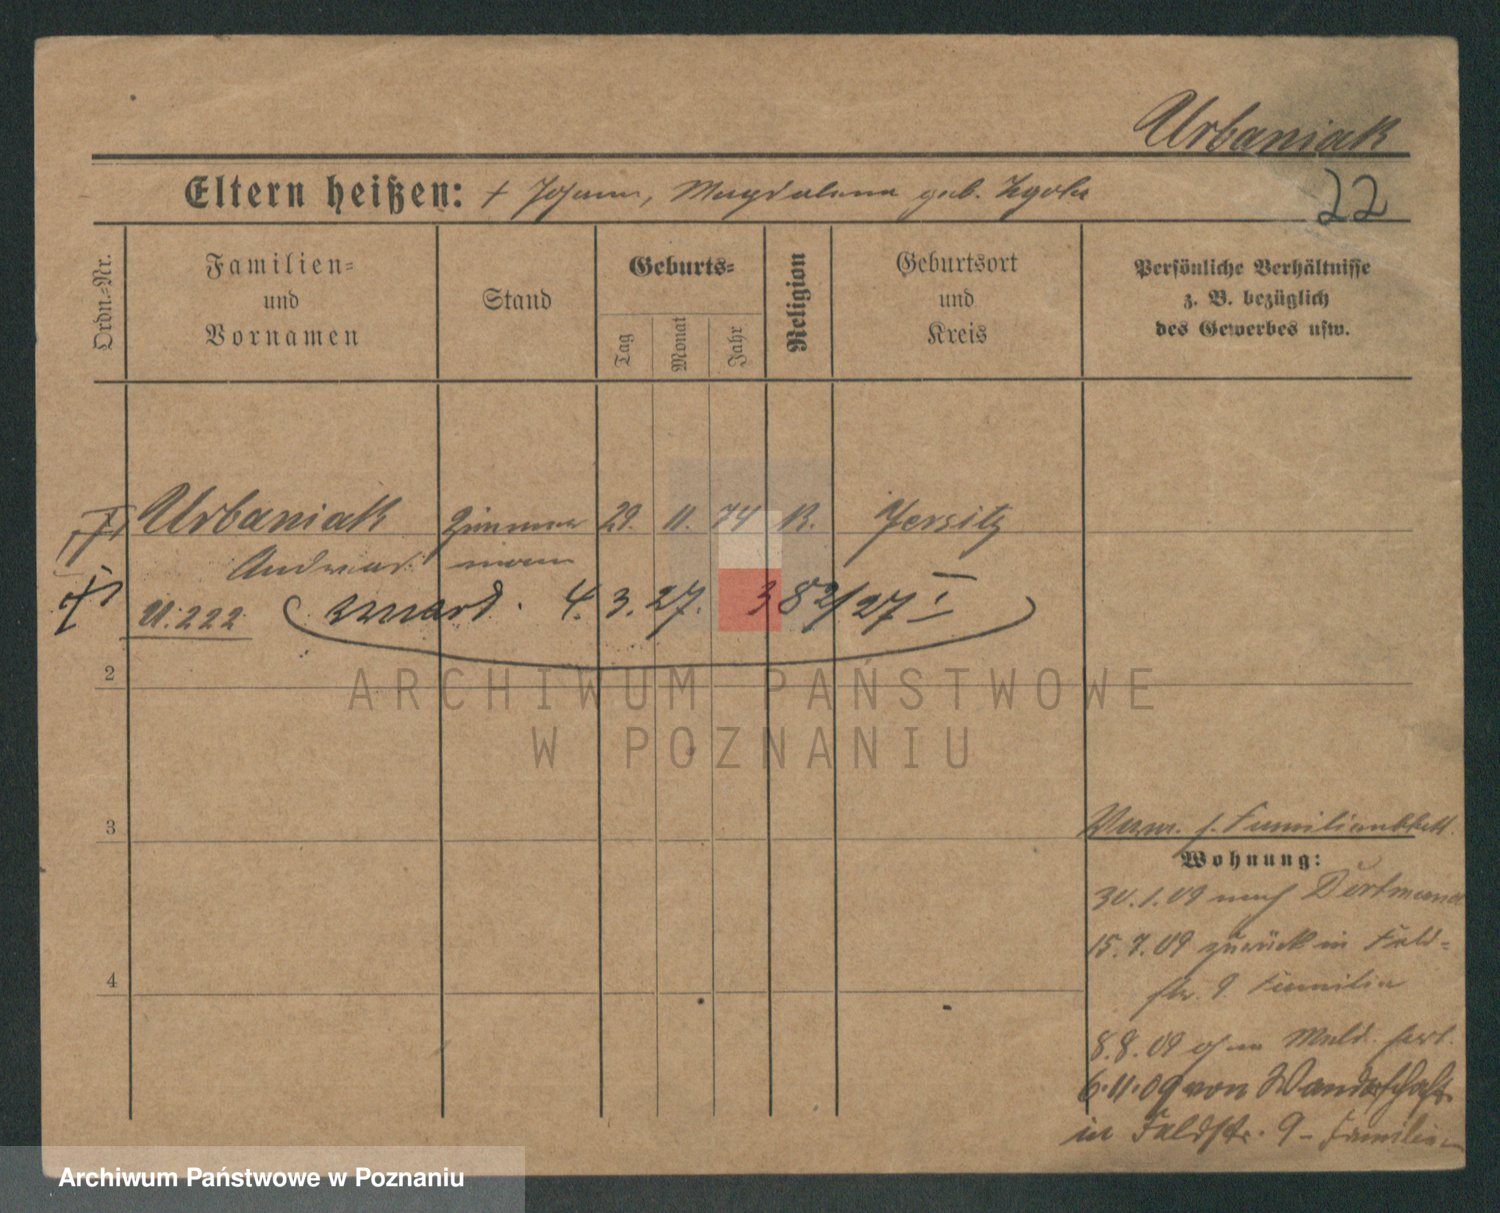 Urbaniak
Eltern heißen: + Johann, Magdalena geb.
22
Ordn.-Nr.
Familien-
und
Vornamen
Stand
Geburts-
Tag
Monat
Jahr
Religion
Geburtsort
und
Kreis
Persönliche Verhältnisse
z. B. bezüglich
des Gewerbes usw.
Urbaniak Zimmer 29. 11. 74 K. Jersitz
Andreas mann
U. 222 4. 3. 27. 382/27 I
2
ARCHIWUM PAŃSTWOWE
W POZNANIU
3
4
s. Familienblatt
Wohnung:
30.1.09 nach Dortmund
15.7.09 zurück in Feld=
str. 9 Familie
8.8.09 ohne Meld. fort.
6.11.09 von Wanderschaft
in Feldstr. 9 - Familie
Archiwum Państwowe w Poznaniu